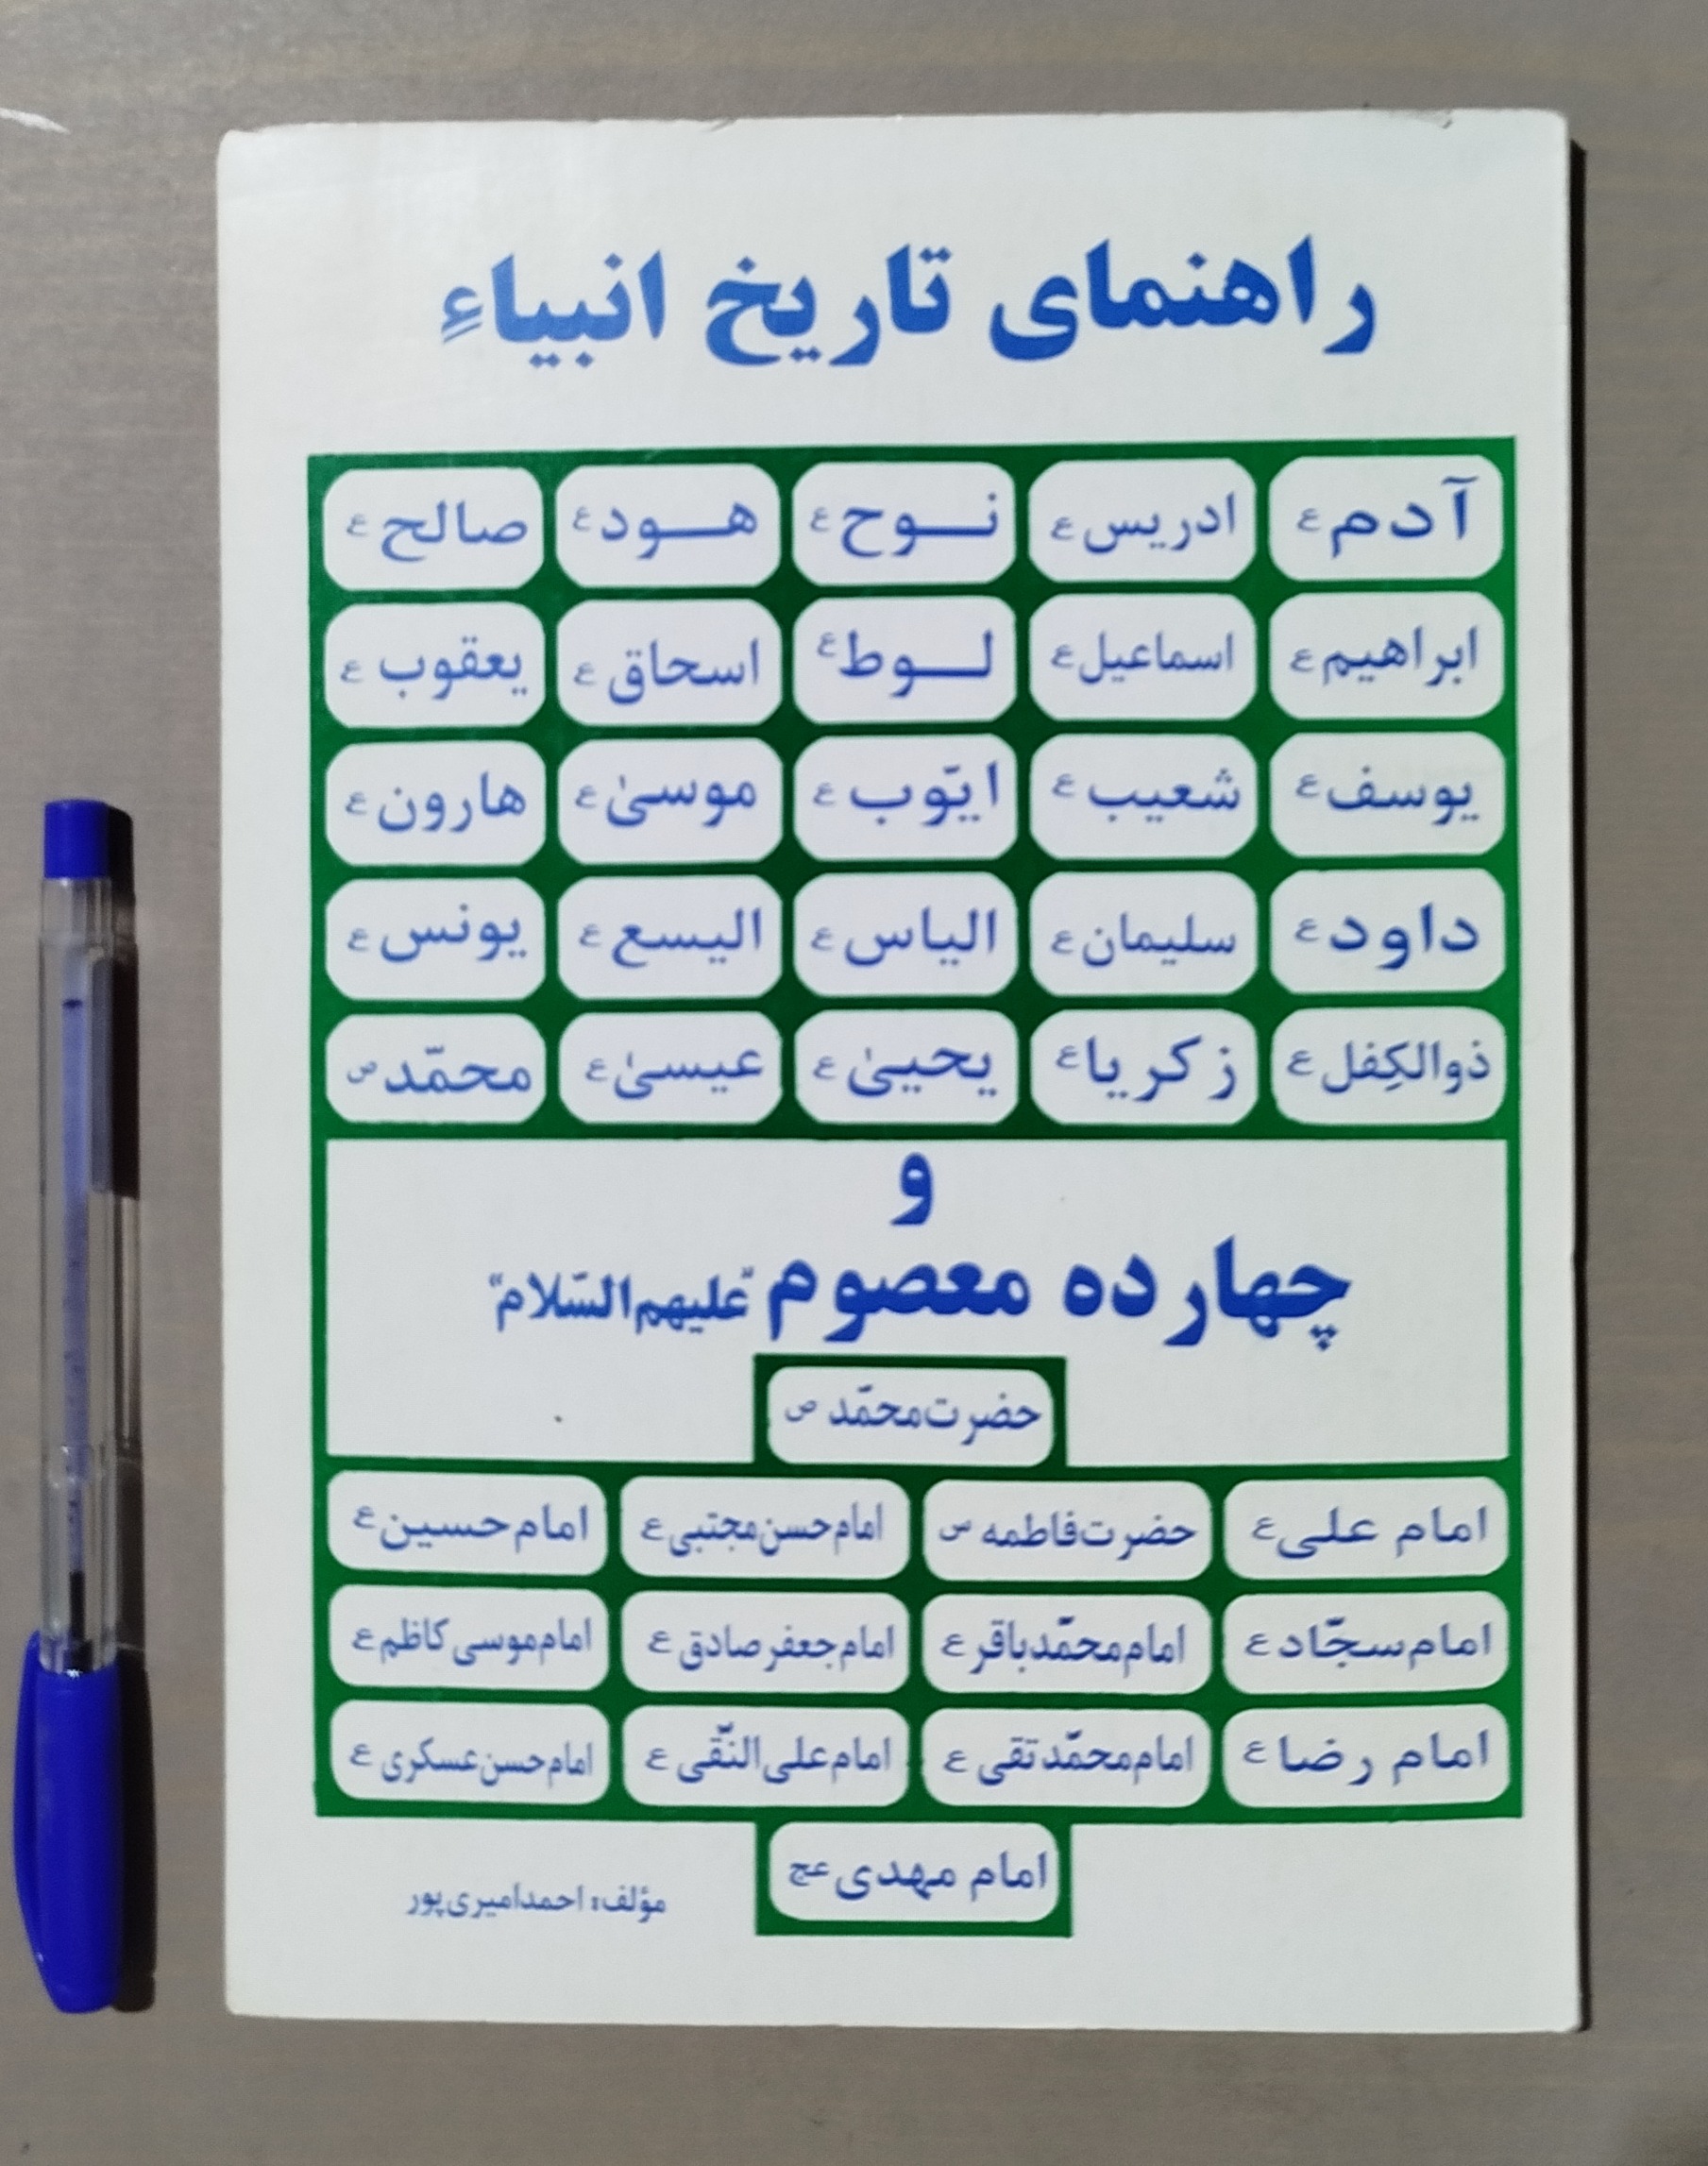 راهنمای تاریخ انبیاءِ
آدم ع ادریس ع نـوح ع هـود ع صالح ع
ابراهیم ع اسماعیل ع لـوط ع اسحاق ع یعقوب ع
یوسف ع شعیب ع ایّوب ع موسیٰ ع هارون ع
داود ع سلیمان ع الیاس ع الیسع ع یونس ع
ذوالکِفل ع زکریا ع یحییٰ ع عیسیٰ ع محمّد ص
و
چهارده معصوم "علیهم السّلام"
حضرت محمّد ص
امام علی ع حضرت فاطمه س امام حسن مجتبی ع امام حسین ع
امام سجّاد ع امام محمّد باقر ع امام جعفر صادق ع امام موسی کاظم ع
امام رضا ع امام محمّد تقی ع امام علی النّقی ع امام حسن عسکری ع
امام مهدی عج
مؤلف: احمد امیری‌پور